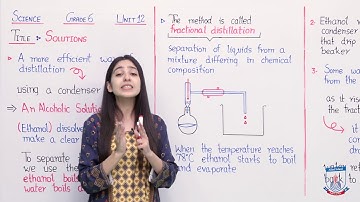 SCIENCE GRADE 6 UNIT 12
TITLE: SOLUTIONS
A more efficient
distillation
using a condenser
An Alcoholic Solution
(Ethanol) dissolve
make a clear
To separate
we use the
ethanol boils
water boils
The method is called
fractional distillation
separation of liquids from a
mixture differing in chemical
composition
When the temperature reaches
78°C ethanol starts to boil
and evaporate
2. Ethanol
condenser
that drip
beaker
3. Some wa
from the
as it ris
the tract
it
co
dr
water ret
back to